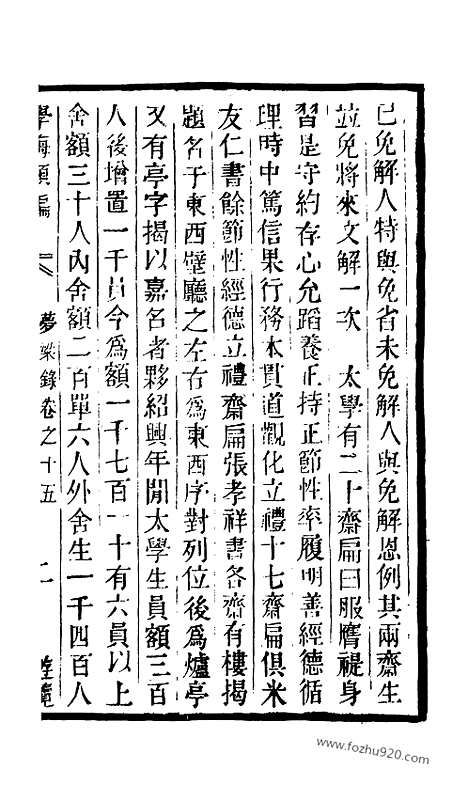 已免解人特與免省未免解人與免解恩例其兩齋生
並免將來文解一次　太學有二十齋扁曰服膺禔身
習是守約存心允蹈養正持正節性率履明善經德循
理時中篤信果行務本貫道觀化立禮十七齋扁俱米
友仁書餘節性經德立禮齋扁張孝祥書各齋有樓揭
題名于東西壁廳之左右爲東西序對列位後爲爐亭
又有亭宇揭以嘉名者夥紹興年間太學生員額三百
人後增置一千員今爲額一千七百一十有六員以上
舍額三十人內舍額二百單六人外舍生一千四百人
學海類編　夢粱錄卷之十五　二
www.fozhu920.com